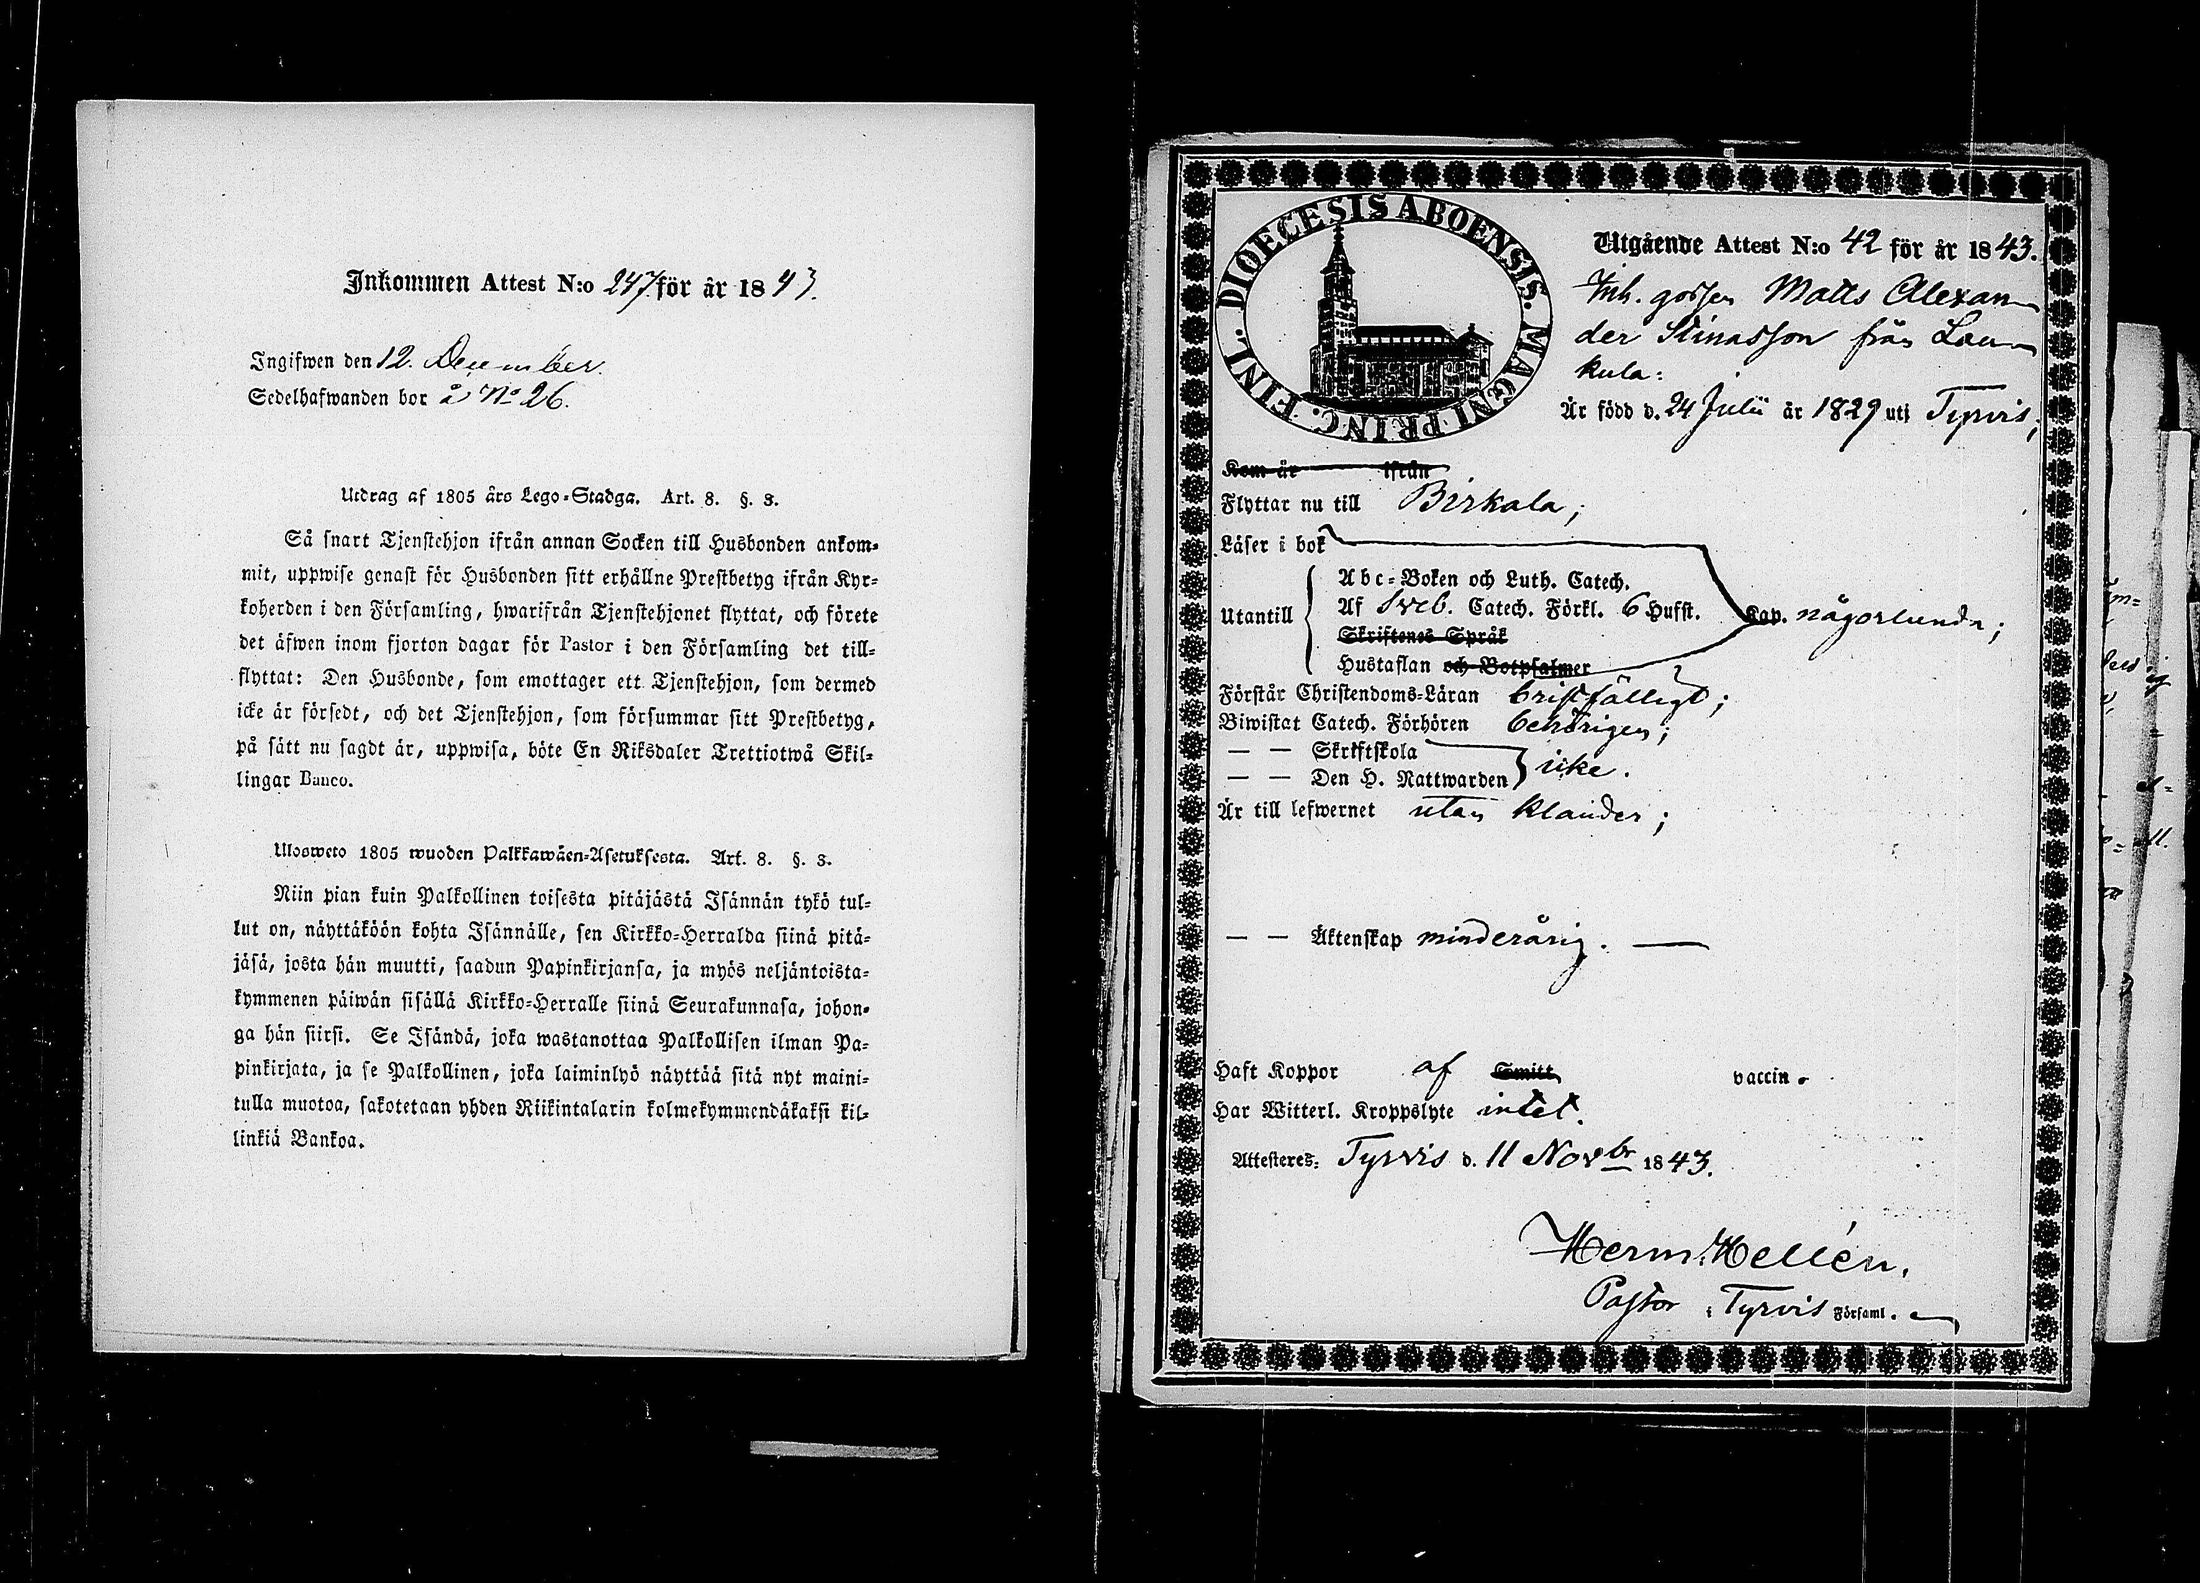 Inkommen Attest N:o 247 för år 1843.
Ingifwen den 12. December.
Sedelhafwanden bor å No 26.
Utdrag af 1805 års Lego-Stadga. Art. 8. §. 3.
Så snart Tjenstehjon ifrån annan Socken till Husbonden ankom-
mit, uppwise genast för Husbonden sitt erhållne Prestbetyg ifrån Kyr-
koherden i den Församling, hwarifrån Tjenstehjonet flyttat, och förete
det äfwen inom fjorton dagar för Pastor i den Församling det till-
flyttat: Den Husbonde, som emottager ett Tjenstehjon, som dermed
icke är försedt, och det Tjenstehjon, som försummar sitt Prestbetyg,
på sätt nu sagdt är, uppwisa, böte En Riksdaler Trettiotwå Skil-
lingar Banco.
Ulosweto 1805 wuoden Palkkawäen-Asetuksesta. Art. 8. §. 3.
Niin pian kuin Palkollinen toisesta pitäjästä Isännän tykö tul-
lut on, näyttäköön kohta Isännälle, sen Kirkko-Herralda siinä pitä-
jäsä, josta hän muutti, saadun Papinkirjansa, ja myös neljäntoista-
kymmenen päiwän sisällä Kirkko-Herralle siinä Seurakunnasa, johon-
ga hän siirsi. Se Isändä, joka wastanottaa Palkollisen ilman Pa-
pinkirjata, ja se Palkollinen, joka laiminlyö näyttää sitä nyt maini-
tulla muotoa, sakotetaan yhden Riikintalarin kolmekymmendäkaksi kil-
linkiä Bankoa.
DIOECESIS ABOENSIS. MAGNI PRINC. FINL.
Utgående Attest N:o 42 för år 1843.
Inh. gossen Matts Alexan-
der Stinasson från Lau-
kula:
Är född d. 24 Julii år 1829 uti Tyrvis;
Kom år ifrån
Flyttar nu till Birkala;
Läser i bok
Utantill
Abc-Boken och Luth. Catech.
Af Sveb. Catech. Förkl. 6 Hufst. Kap. någorlunda;
Skriftenes Språk
Hustaflan och Botpsalmer
Förstår Christendoms-Läran bristfälligt;
Biwistat Catech. Förhören behörigen;
— — Skriftskola
— — Den H. Nattwarden icke.
Är till lefwernet utan klander;
— — Äktenskap minderårig. —
Haft Koppor af Smitt vaccin.
Har Witterl. Kroppslyte intet.
Attesteres: Tyrvis d. 11 Novbr 1843.
Herm. Hellén,
Pastor i Tyrvis Församl.